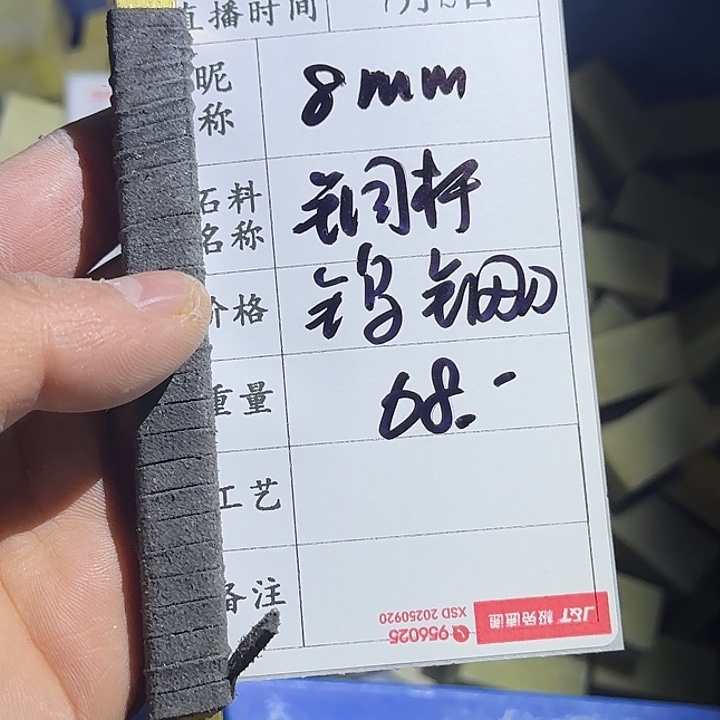 直播时间 1月12日
昵称 8mm
石料名称 铜杆
价格 钨钢刀
重量 68.-
工艺
备注
J&T 极兔速递
956025
XSD 20250920